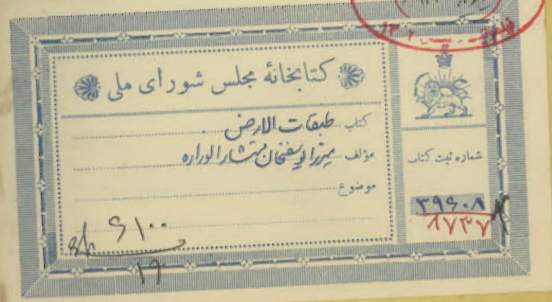 کتابخانه مجلس شورای ملی
کتاب طبقات الارض
مؤلف میرزا یوسفخان مستشار الوزاره
موضوع
شماره ثبت کتاب
۳۹۶۰۸
۸۷۳۷
۶۱۰۰
۱۶